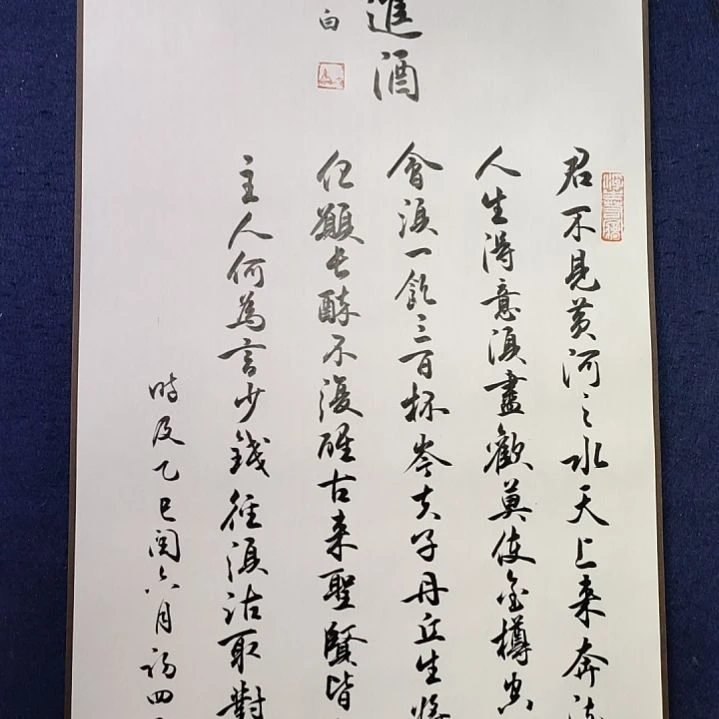 進酒
白
君不見黄河之水天上来奔流
人生得意須盡歡莫使金樽空
會須一飲三百杯岑夫子丹丘生將
但願长醉不復醒古来聖賢皆
主人何為言少錢徑須沽取對
時及乙巳閏六月初四